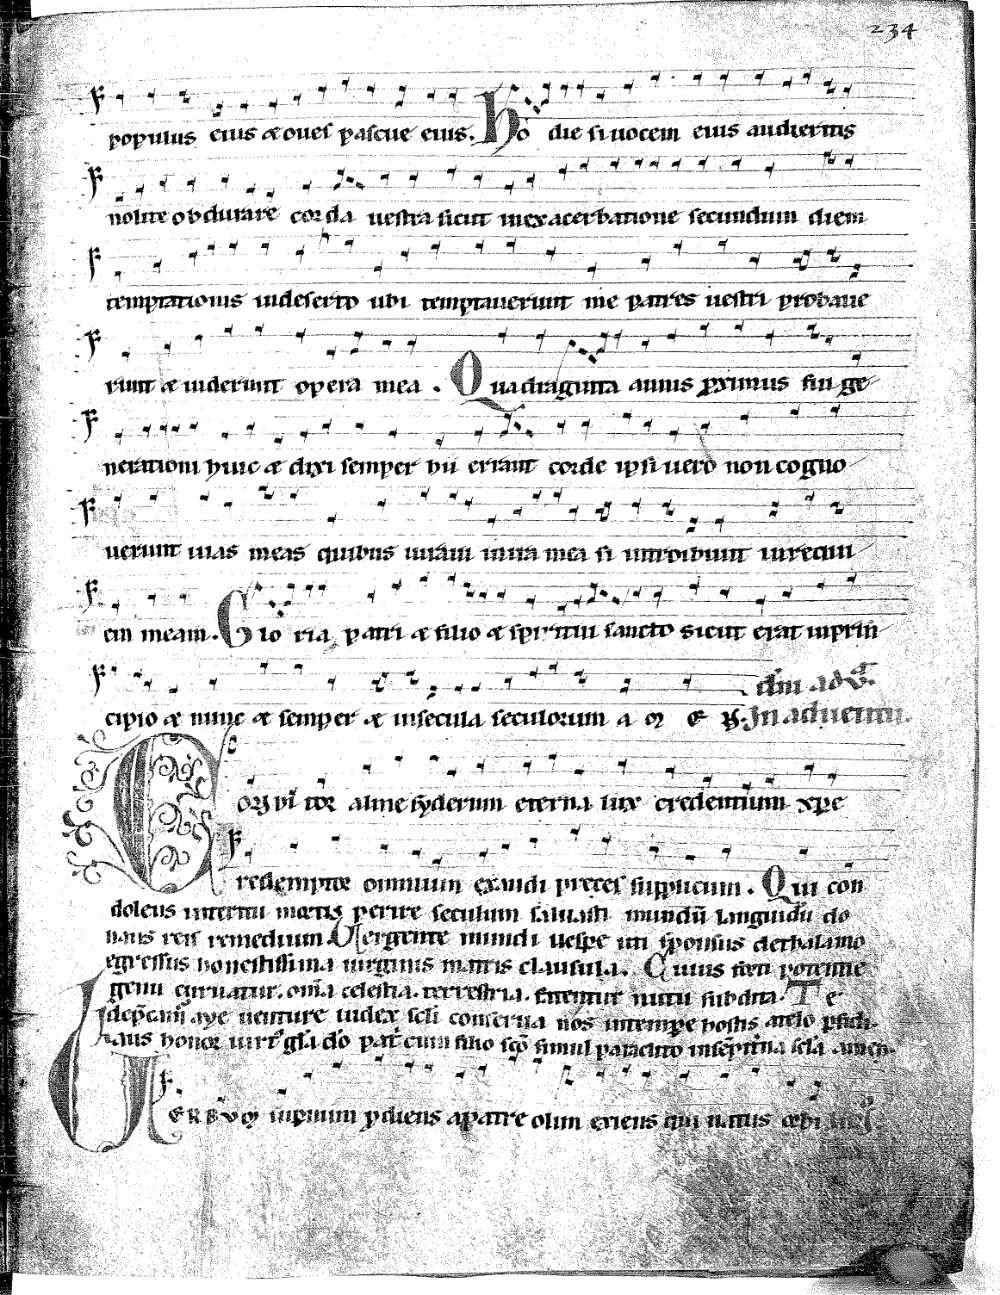 234
populus eius & oues pascue eius. Ho die si uocem eius audieritis
nolite obdurare corda uestra sicut inexacerbatione secundum diem
temptationis indeserto ubi temptauerunt me patres uestri probaue
runt & uiderunt opera mea. Quadraginta annis pximus fui ge
nerationi huic & dixi semper hii errant corde ipsi uero non cogno
uerunt uias meas quibus iuraui in ira mea si introibunt inrequi
em meam. Glo ria patri & filio & spiritui sancto sicut erat inprin
dm̄ ad
cipio & nunc & semper & insecula seculorum a m e N. In aduentu.
Conditor alme syderum eterna lux credentium xp̄e
redemptor omnium exaudi preces supplicum. Qui con
dolens interitu mortis perire seculum saluasti mundū languidū do
nans reis remedium. Uergente mundi uespe uti sponsus dethalamo
egressus honestissima uirginis matris clausula. Cuius forti potentie
genu curuatur omīa celestia terrestria fatentur nutu subdita. Te
dep̄camur agye uenture iudex scli conserua nos intempe hostis atelo pfidi.
Laus honor uirt gl̄a dō patri cum filio scō simul paraclito insēpitna scl̄a amen.
VERBVM supnum pdiens apatre olim exiens qui natus orbi